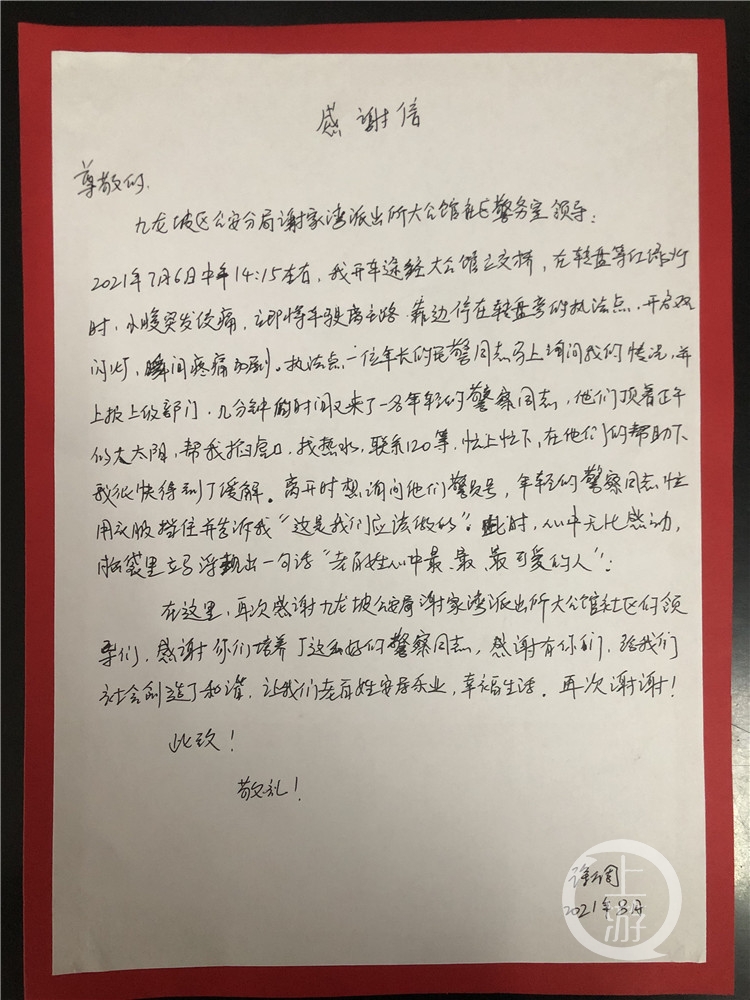 感谢信
尊敬的.
九龙坡区公安分局谢家湾派出所大公馆社区警务室领导:
2021年7月6日中午14:15左右,我开车途经大公馆立交桥,在转盘等红绿灯
时,小腹突发绞痛,立即将车驶离主路.靠边停在转盘旁的执法点.开启双
闪灯,瞬间疼痛加剧。执法点一位年长的民警同志马上询问我的情况,并
上报上级部门,几分钟的时间又来了一名年轻的警察同志,他们顶着正午
的大太阳,帮我掐虎口,找热水,联系120等,忙上忙下,在他们的帮助下
我很快得到了缓解。离开时想询问他们警员号,年轻的警察同志忙
用衣服挡住并告诉我“这是我们应该做的”。此时,心中无比感动,
脑袋里立马浮现出一句话“老百姓心中最、最、最可爱的人”:
在这里,再次感谢九龙坡公安局谢家湾派出所大公馆社区的领
导们,感谢你们培养了这么好的警察同志,感谢有你们,给我们
社会创造了和谐,让我们老百姓安居乐业,幸福生活。再次谢谢!
此致!
敬礼!
2021年8月
上游